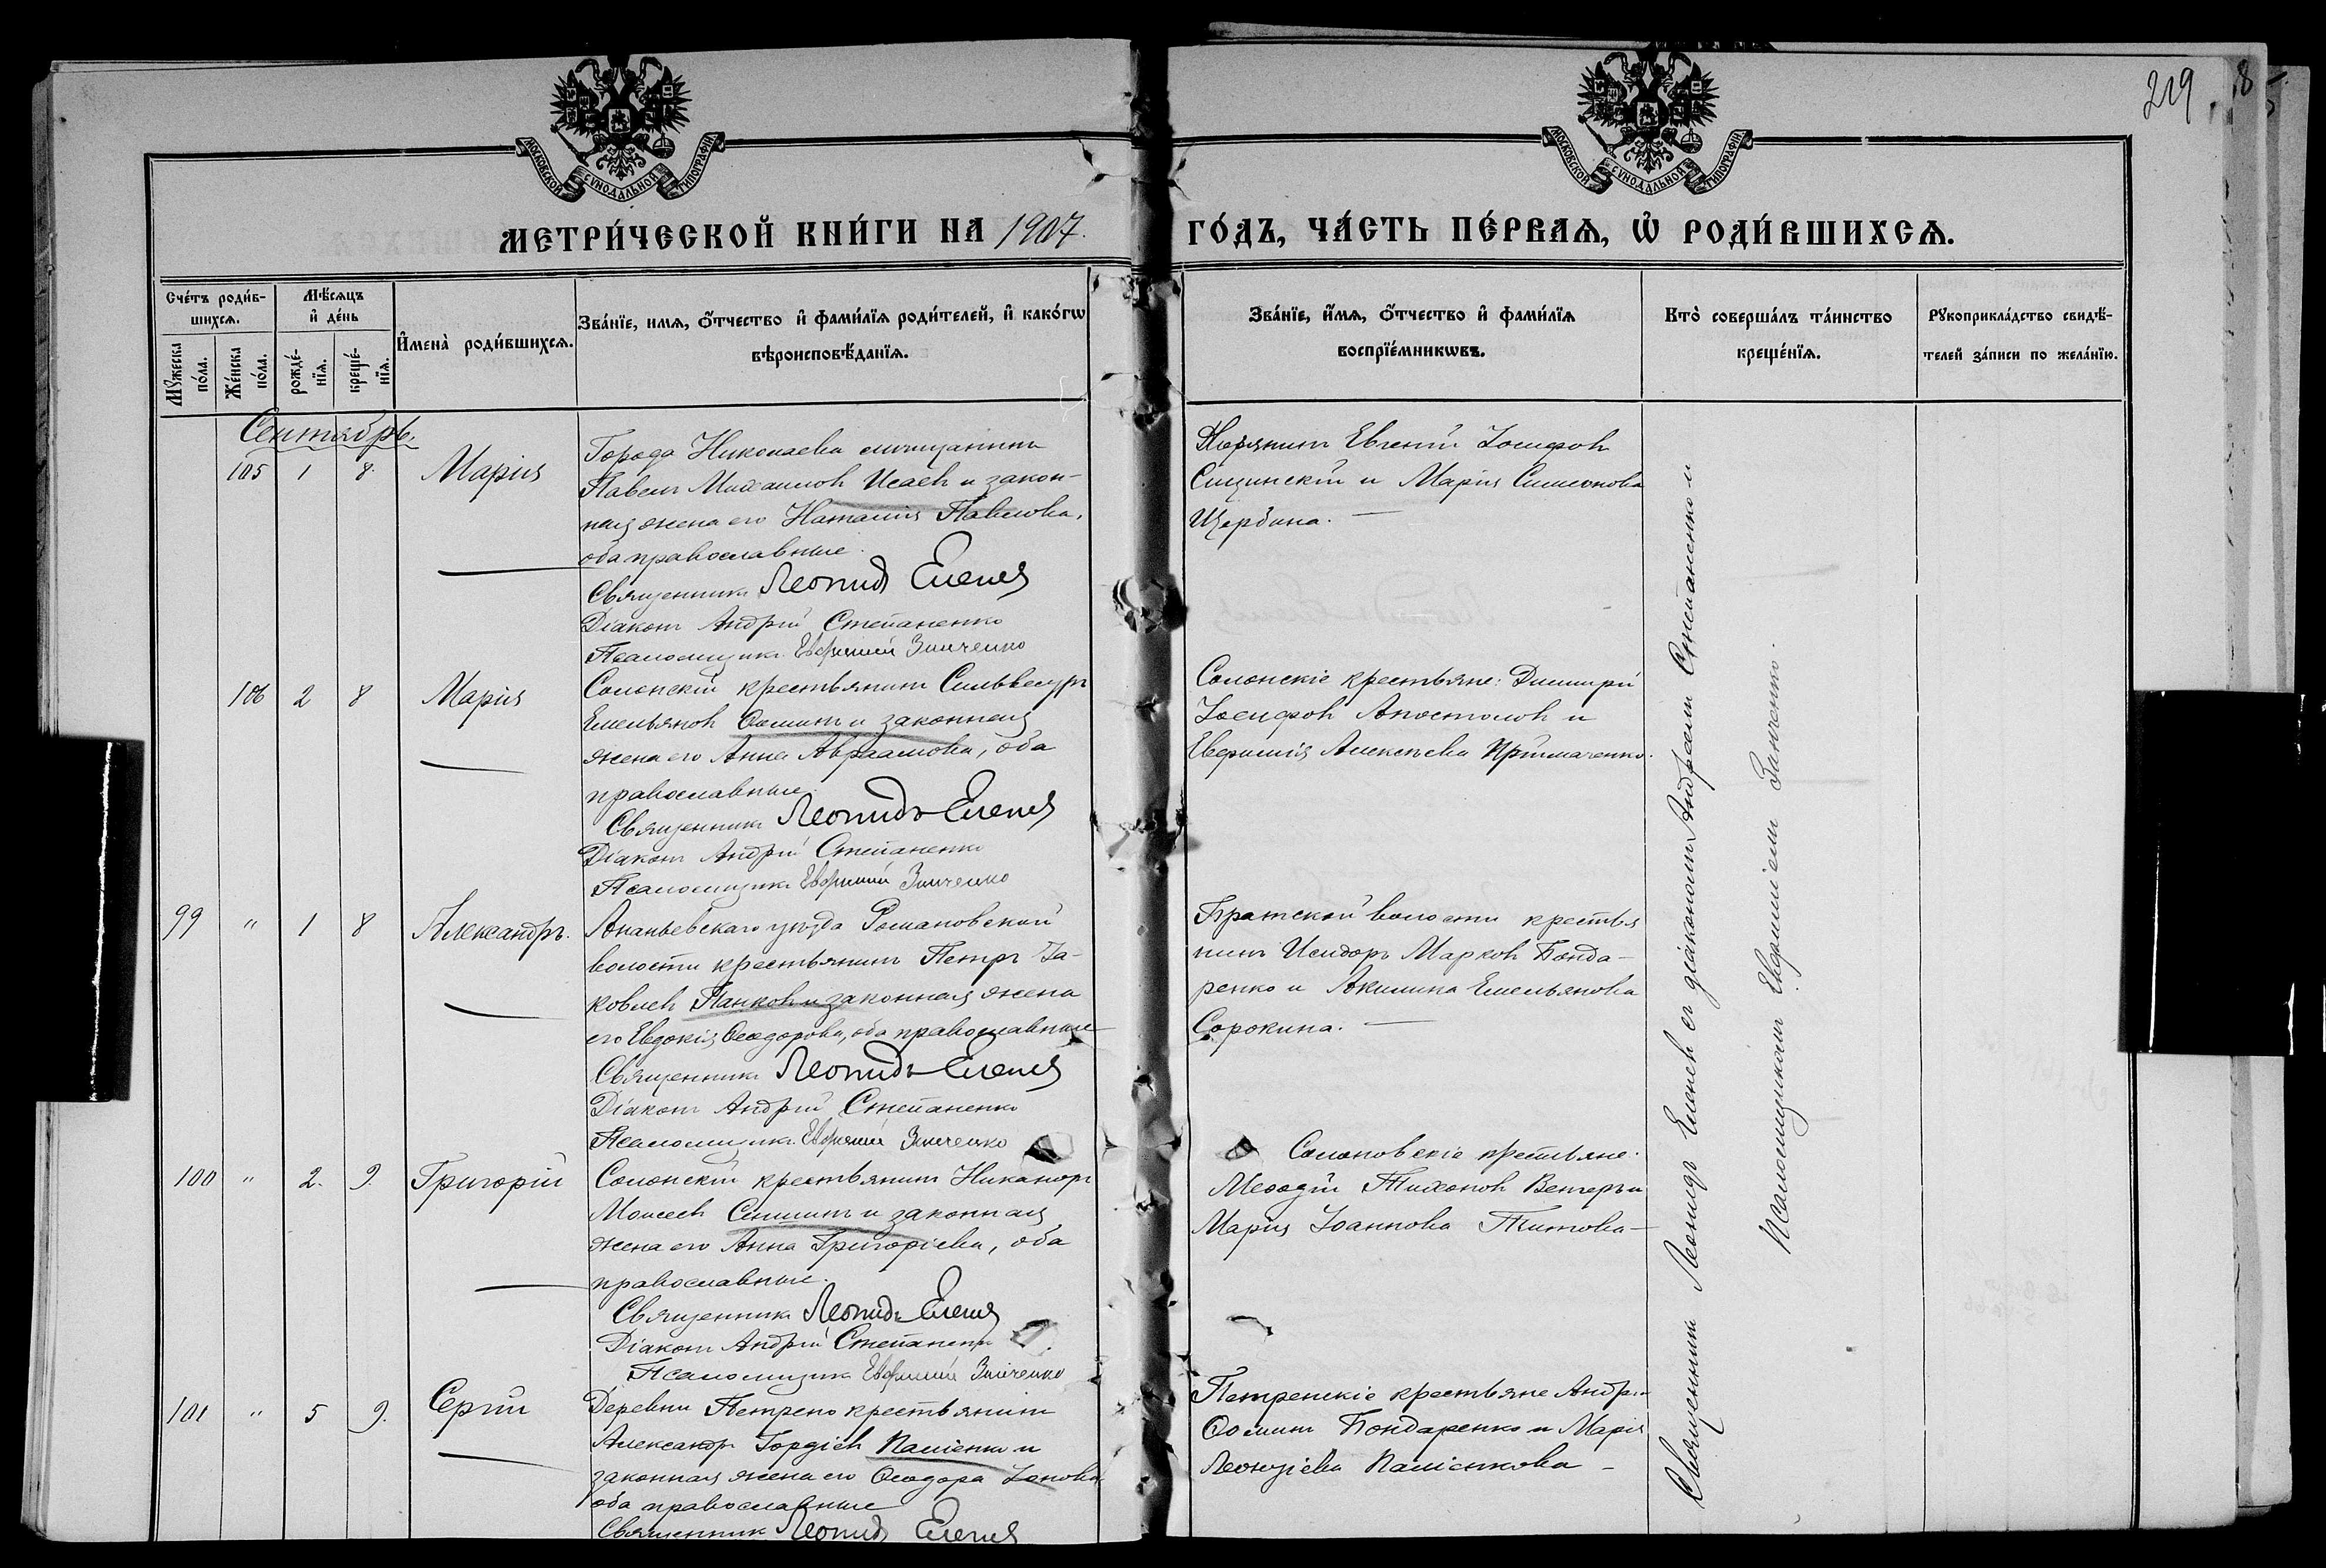 219
МОСКОВСКОЙ СѴНОДАЛЬНОЙ ТИПОГРАФІИ
МОСКОВСКОЙ СѴНОДАЛЬНОЙ ТИПОГРАФІИ
МЕТРИ́ЧЕСКОЙ КНИ́ГИ НА 1907.
ГО́ДЪ, ЧА́СТЬ ПЕ́РВАЯ, Ѡ РОДИ́ВШИХСЯ.
Сче́тъ роди́в-
шихся.
Мꙋжеска
по́ла.
Же́нска
по́ла.
Мѣ́сяцъ
и де́нь
рожде́-
нїя.
креще́-
нїя.
Имена̀ роди́вшихся.
Зва́нїе, имя, ѻ҆́тчество и фами́лїя роди́телей, и како́гѡ
вѣроисповѣ́данїя.
Зва́нїе, и́мя, ѻ҆́тчество и фами́лїя
воспрїе́мникѡвъ.
Кто̀ соверша́лъ та́инство
креще́нїя.
Рꙋкоприкла́дство свидѣ́-
телей за́писи по жела́нїю.
Сентябрь.
105 1 8. Марія
Города Николаева мѣщанинъ
Павелъ Михаиловъ Исаевъ и закон-
ная жена его Наталія Павлова,
оба православные.
Священникъ Леонидъ Еленевъ
Діаконъ Андрей Степаненко
Псаломщикъ Евфимій Зинченко
Дворянинъ Евгеній Іосифовъ
Сицинскій и Марія Симеонова
Щербина. —
106 2 8 Марія
Солонскій крестьянинъ Сильвестръ
Емельяновъ Ѳоминъ и законная
жена его Анна Авраамова, оба
православные.
Священникъ Леонидъ Еленевъ
Діаконъ Андрей Степаненко
Псаломщикъ Евфимій Зинченко
Солонскіе крестьяне: Димитрій
Іосифовъ Апостоловъ и
Евфимія Алексѣева Приймаченко.
99 " 1 8 Александръ.
Ананьевскаго уѣзда Романовской
волости крестьянинъ Петръ Іа-
ковлевъ Панковъ и законная жена
его Евдокія Ѳеодорова, оба православные
Священникъ Леонидъ Еленевъ
Діаконъ Андрей Степаненко
Псаломщикъ Евфимій Зинченко
Братской волости крестья
нинъ Исидоръ Марковъ Бонда-
ренко и Акилина Емельянова
Сорокина. —
100 " 2. 9. Григорій
Солонскій крестьянинъ Никаноръ
Моисеевъ и законная
жена его Анна Григоріева, оба
православные.
Священникъ Леонидъ Еленевъ
Діаконъ Андрей Степаненко
Псаломщикъ Евфимій Зинченко
Солоновскіе крестьяне.
Меѳодій Тихоновъ Венгеръ и
Марія Іоаннова Титова —
101 " 5 9. Сергій
Деревни Петрено крестьянинъ
Александръ Гордіевъ и
законная жена его Ѳеодора Іонова
оба православные
Священникъ Леонидъ Еленевъ
Петренскіе крестьяне Андрей
Ѳоминъ Бондаренко и Марія
Леонтіева —
Священникъ Леонидъ Еленевъ съ діакономъ Андреемъ Степаненко и
Псаломщикомъ Евфиміемъ Зинченко.